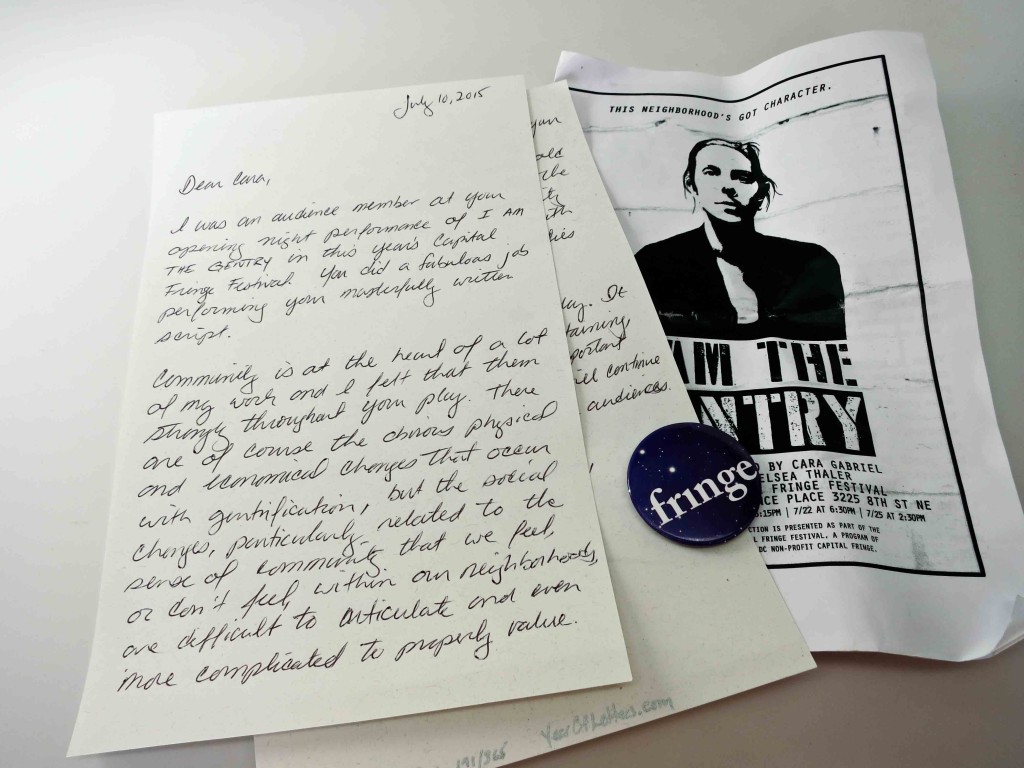 July 10, 2015
Dear Cara,
I was an audience member at your
opening night performance of I AM
THE GENTRY in this year's Capital
Fringe Festival. You did a fabulous job
performing your masterfully written
script.
Community is at the heart of a lot
of my work and I felt that them
strongly throughout your play. There
are of course the obvious physical
and economical changes that occur
with gentrification, but the social
changes, particularly related to the
sense of community that we feel,
or don't feel, within our neighborhoods,
are difficult to articulate and even
more complicated to properly value.
It
portant
will continue
audiences.
191/365 YearOfLetters.com
THIS NEIGHBORHOOD'S GOT CHARACTER.
AM THE
NTRY
BY CARA GABRIEL
ELSEA THALER
FRINGE FESTIVAL
NCE PLACE 3225 8TH ST NE
:15PM | 7/22 AT 6:30PM | 7/25 AT 2:30PM
CTION IS PRESENTED AS PART OF THE
L FRINGE FESTIVAL, A PROGRAM OF
DC NON-PROFIT CAPITAL FRINGE.
fringe